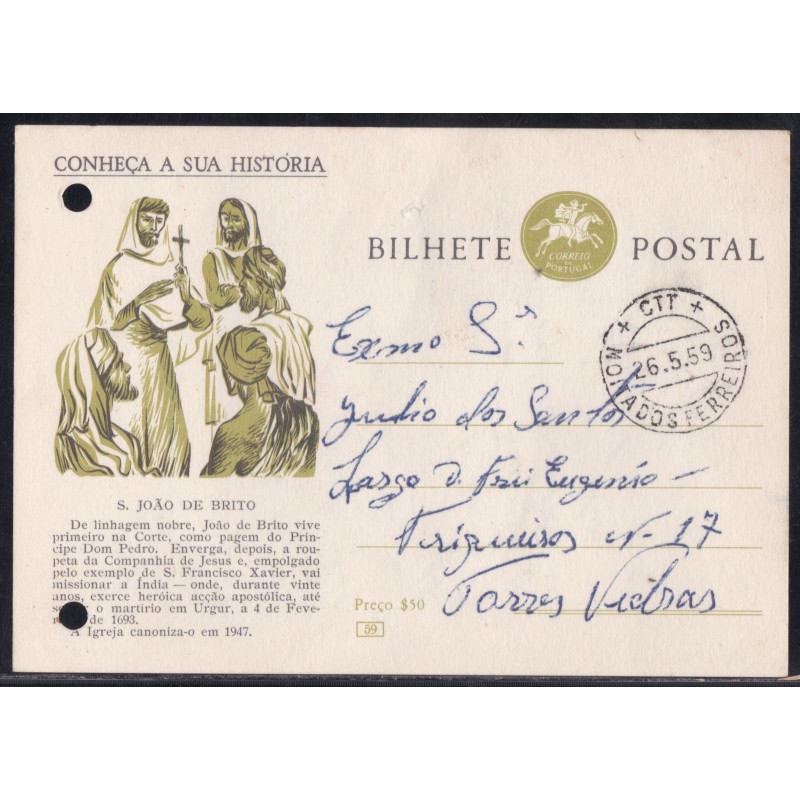 CONHEÇA A SUA HISTÓRIA
BILHETE POSTAL
CORREIO
DE
PORTUGAL
+ CTT +
26.5.59
MOITA DOS FERREIROS
Exmo Sr.
Julio dos Santos
Largo D. Frei Eugenio -
Nº 17
Torres Vedras
S. JOÃO DE BRITO
De linhagem nobre, João de Brito vive
primeiro na Corte, como pagem do Prín-
cipe Dom Pedro. Enverga, depois, a rou-
peta da Companhia de Jesus e, empolgado
pelo exemplo de S. Francisco Xavier, vai
missionar a Índia — onde, durante vinte
anos, exerce heróica acção apostólica, até
o martírio em Urgur, a 4 de Feve-
de 1693.
A Igreja canoniza-o em 1947.
Preço $50
59